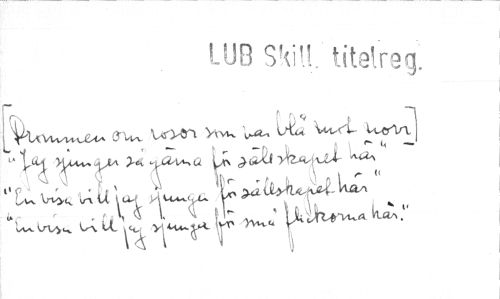 LUB Skill. titelreg.
[Drömmen om rosor som var blå mot norr]
"Jag sjunger så gärna för sällskapet här"
"En visa vill jag sjunga för sällskapet här"
"En visa vill jag sjunga för små flickorna här."